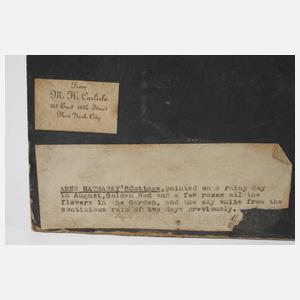 From
M. H. Carlisle
East 18th Street
New York City
ANNE HATHAWAY'SCottage,painted on a rainy day
in August,Golden Rod and a few roses all the
flowers in the Garden, and the sky white from the
continious rain of two days previously.